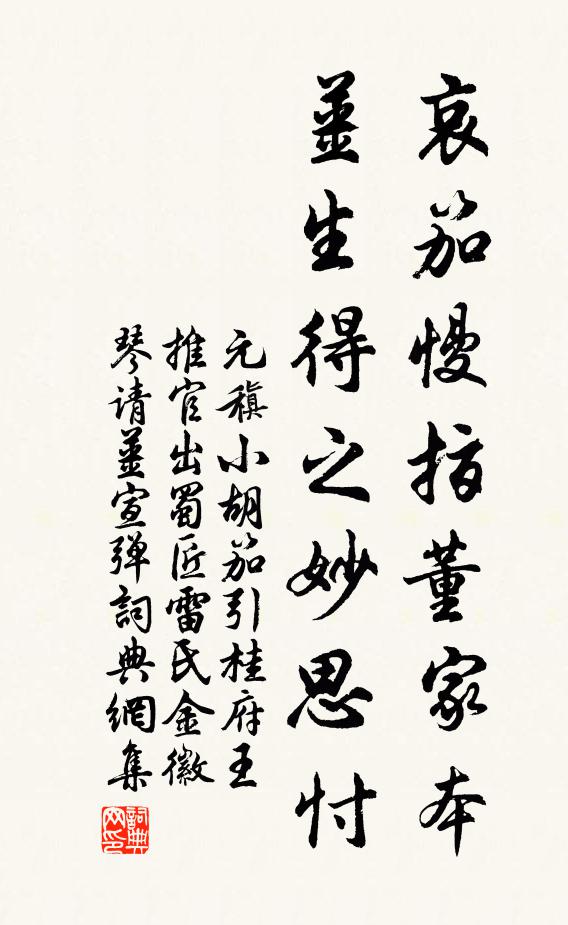 哀笳慢指董家本
薑生得之妙思忖
元稹小胡笳引桂府王
推官出蜀匠雷氏金徽
琴请薑宣弹詞典網集
詞典
网印